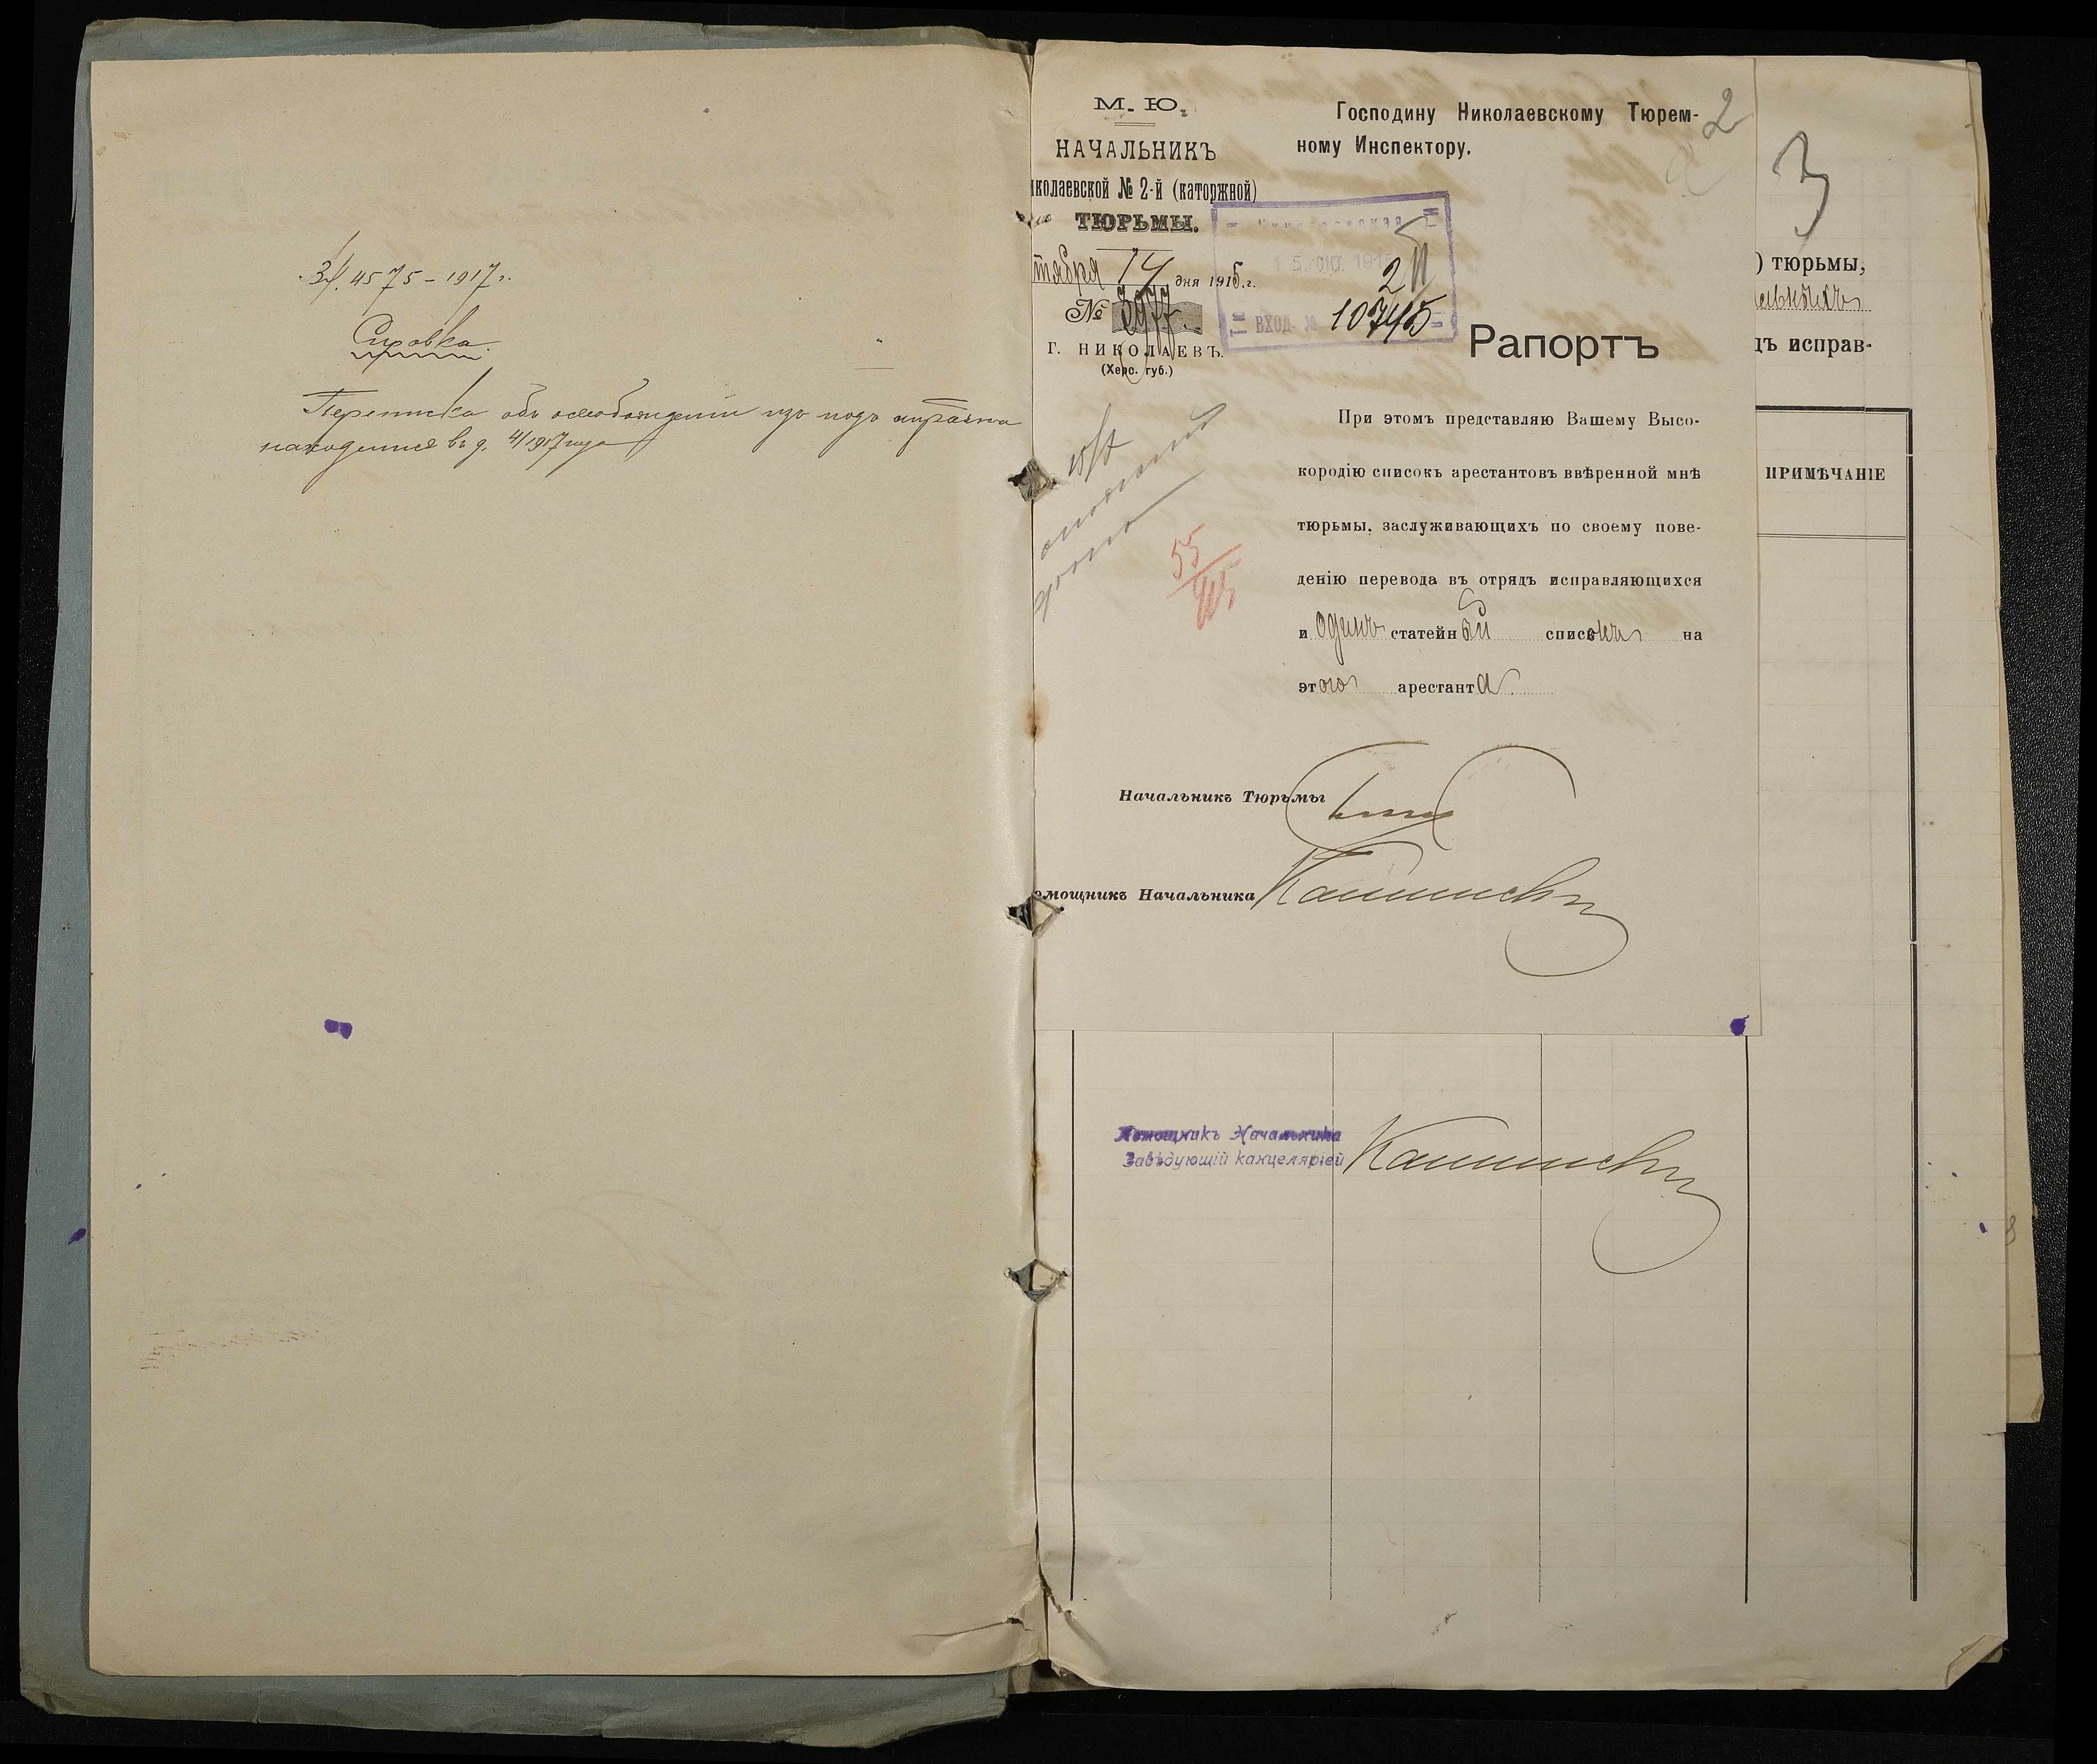 Зд. 4575 – 1917 г.
Справка.
Переписка объ освобожденіи изъ подъ стражи
находится въ д. 4/1917 года
М. Ю.
НАЧАЛЬНИКЪ
иколаевской № 2-й (каторжной)
ТЮРЬМЫ.
тября 14 дня 1915 г.
№ 3977.
Г. НИКОЛАЕВЪ.
(Херс. губ.)
Господину Николаевскому Тюрем-
ному Инспектору.
2
15 ОКТ. 1915
ВХОД. № 10745
Рапортъ
При этомъ представляю Вашему Высо-
кородію списокъ арестантовъ ввѣренной мнѣ
тюрьмы, заслуживающихъ по своему пове-
денію перевода въ отрядъ исправляющихся
и одинъ статейный списокъ на
этого арестанта.
55
915
Начальникъ Тюрьмы
омощникъ Начальника
3
) тюрьмы,
дъ исправ-
ПРИМѢЧАНІЕ
Помощникъ Начальника
Завѣдующій канцеляріей